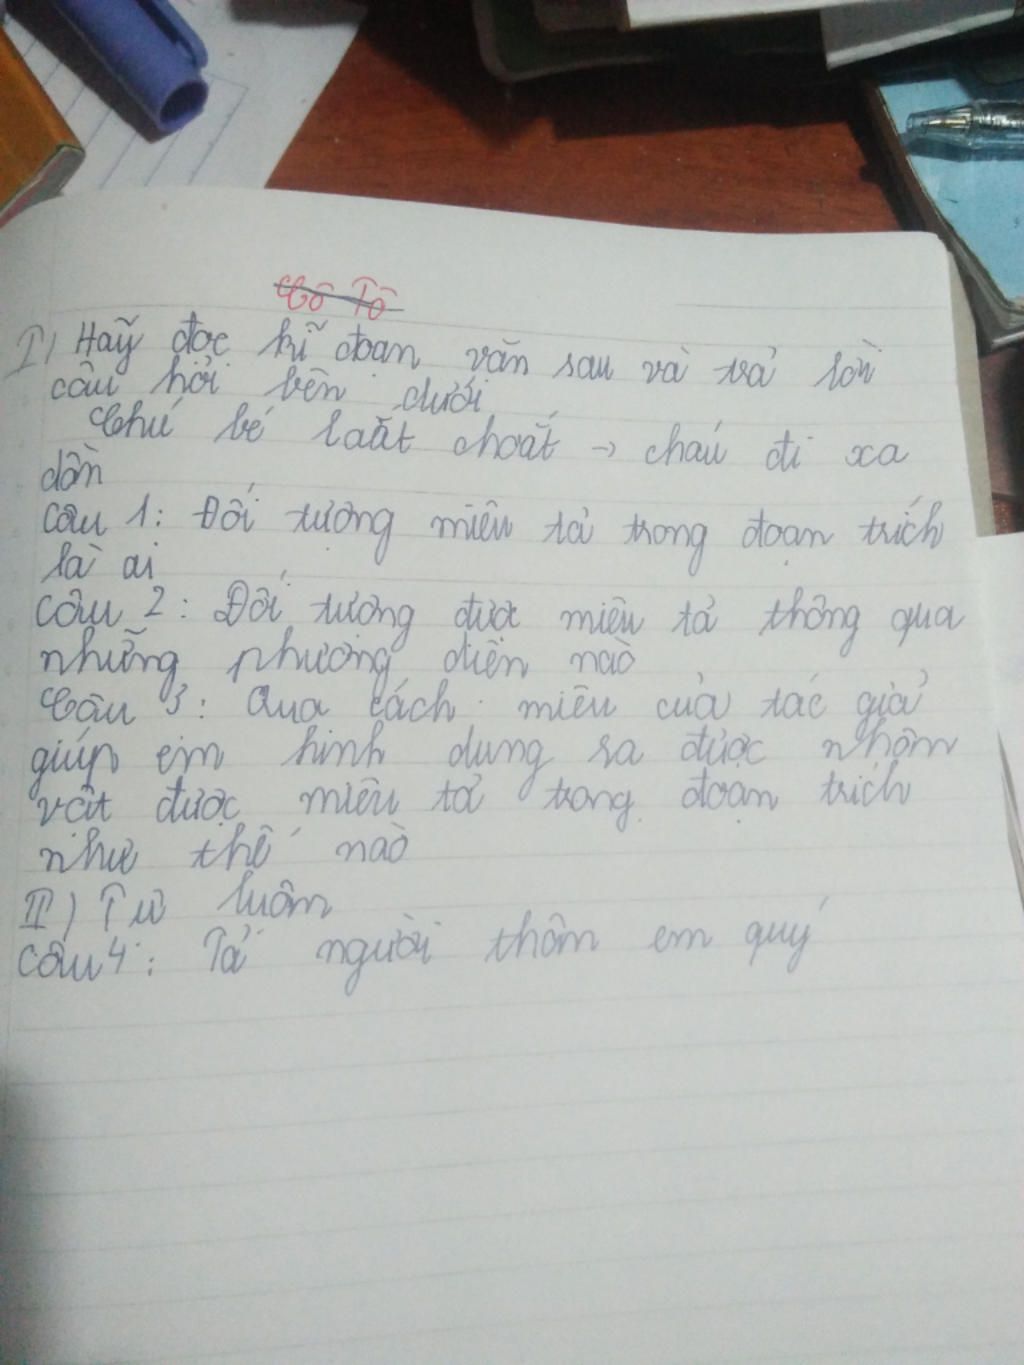 Cô Tô
I) Hãy đọc kĩ đoạn văn sau và trả lời
câu hỏi bên dưới
Chú bé loắt choắt → cháu đi xa
dần
Câu 1: Đối tượng miêu tả trong đoạn trích
là ai
Câu 2: Đối tượng được miêu tả thông qua
những phương diện nào
Câu 3: Qua cách miêu của tác giả
giúp em hình dung ra được nhân
vật được miêu tả trong đoạn trích
như thế nào
II) Tự luận
Câu 4: Tả người thân em quý